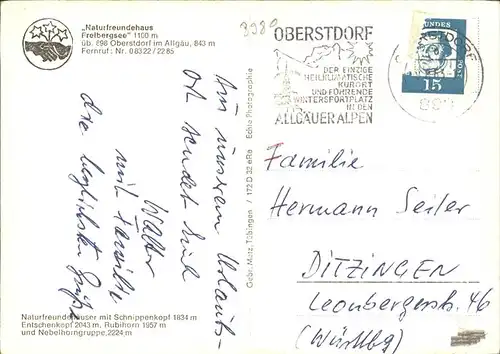 „Naturfreundehaus
Freibergsee" 1100 m
üb. 898 Oberstdorf im Allgäu, 843 m
Fernruf: Nr. 08322/2285
3980
OBERSTDORF
DER EINZIGE
HEILKLIMATISCHE
KURORT
UND FÜHRENDE
WINTERSPORTPLATZ
IN DEN
ALLGÄUER ALPEN
15
Aus unserem Urlaubs-
ort sendet Euch
die herzlichsten Grüße
Walter
mit Familie
Gebr. Metz, Tübingen / 172 D 32 eRa Echte Photographie
Familie
Hermann Seiler
DITZINGEN
Leonbergerstr. 46
(Württbg)
Naturfreundehäuser mit Schnippenkopf 1834 m
Entschenkopf 2043 m, Rubihorn 1957 m
und Nebelhorngruppe, 2224 m